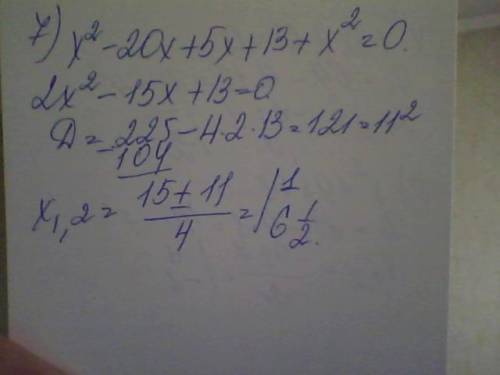 7) x² - 20x + 5x + 13 + x² = 0.
2x² - 15x + 13 = 0
D = 225 - 4·2·13 = 121 = 11²
104
x₁,₂ = (15 ± 11)/4 = | 1
6 1/2.